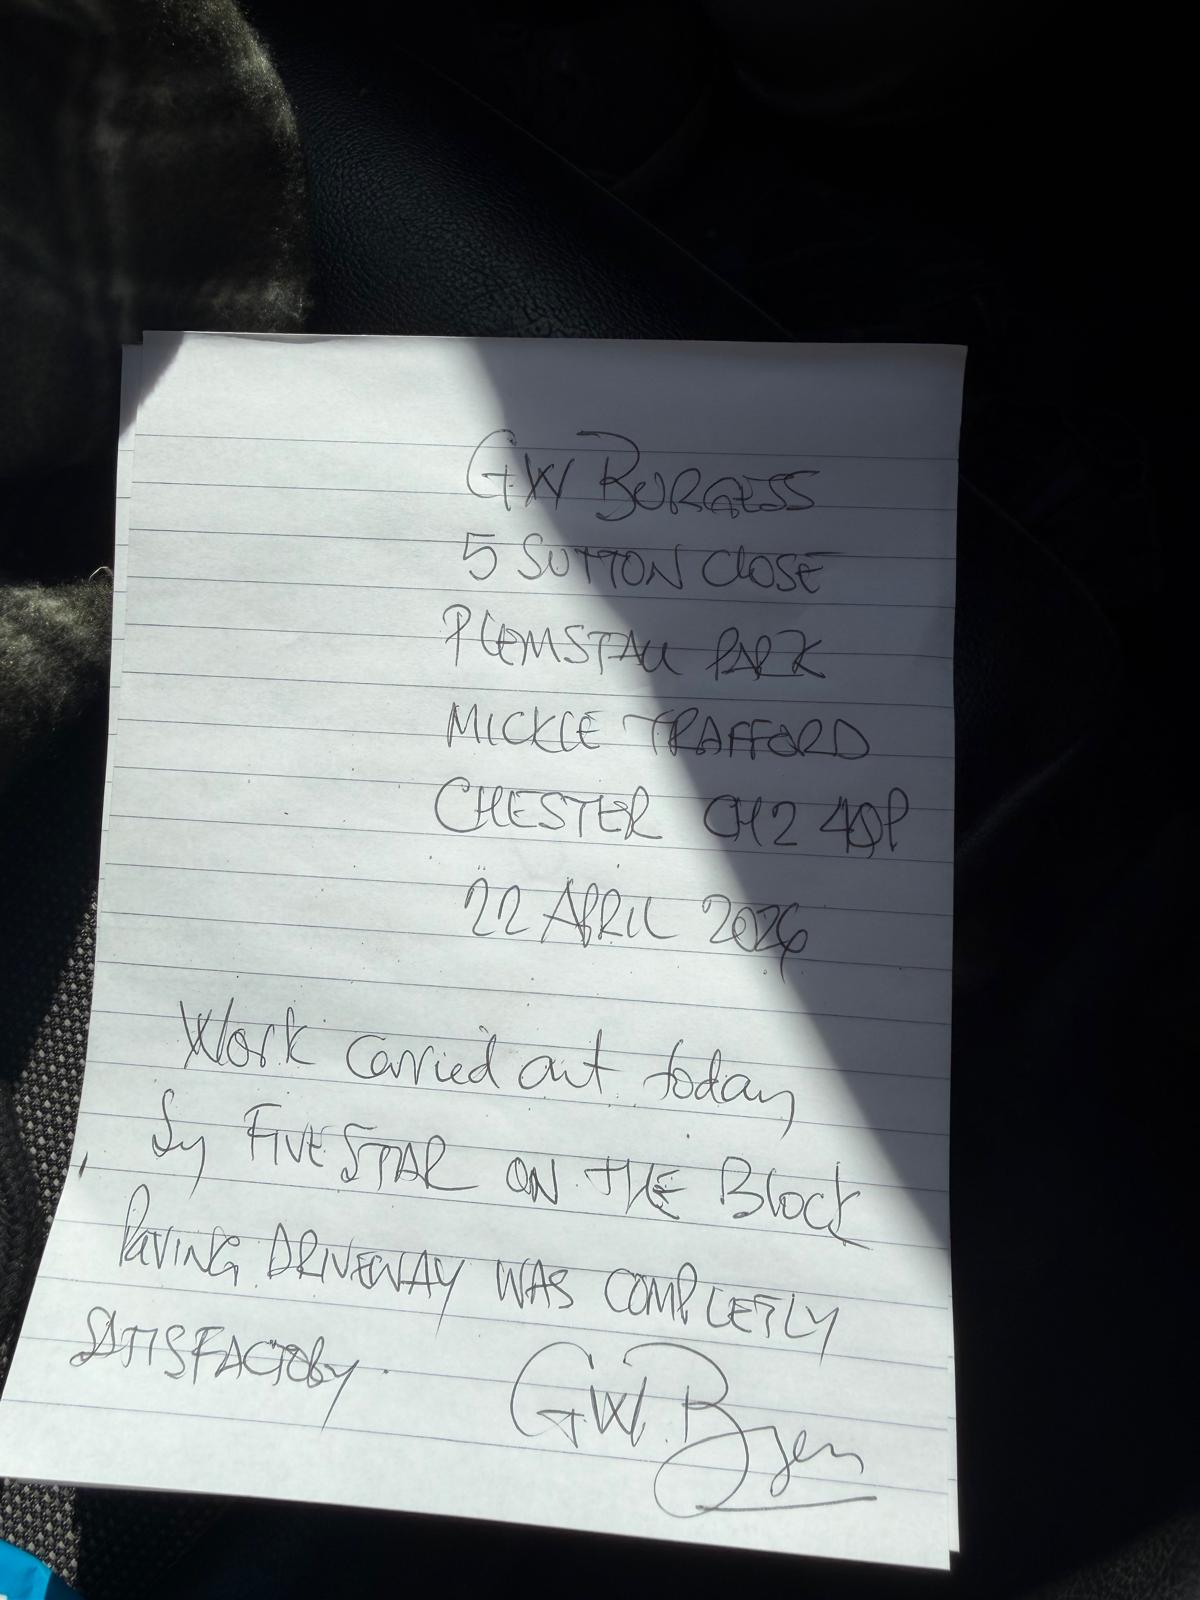 GW BURGESS
5 SUTTON CLOSE
PLEMSTALL PARK
MICKLE TRAFFORD
CHESTER CH2 4QP
22 APRIL 2026
Work carried out today
by FIVE STAR ON THE BLOCK
PAVING DRIVEWAY WAS COMPLETLY
SATISFACTORY.
GW. Burgess